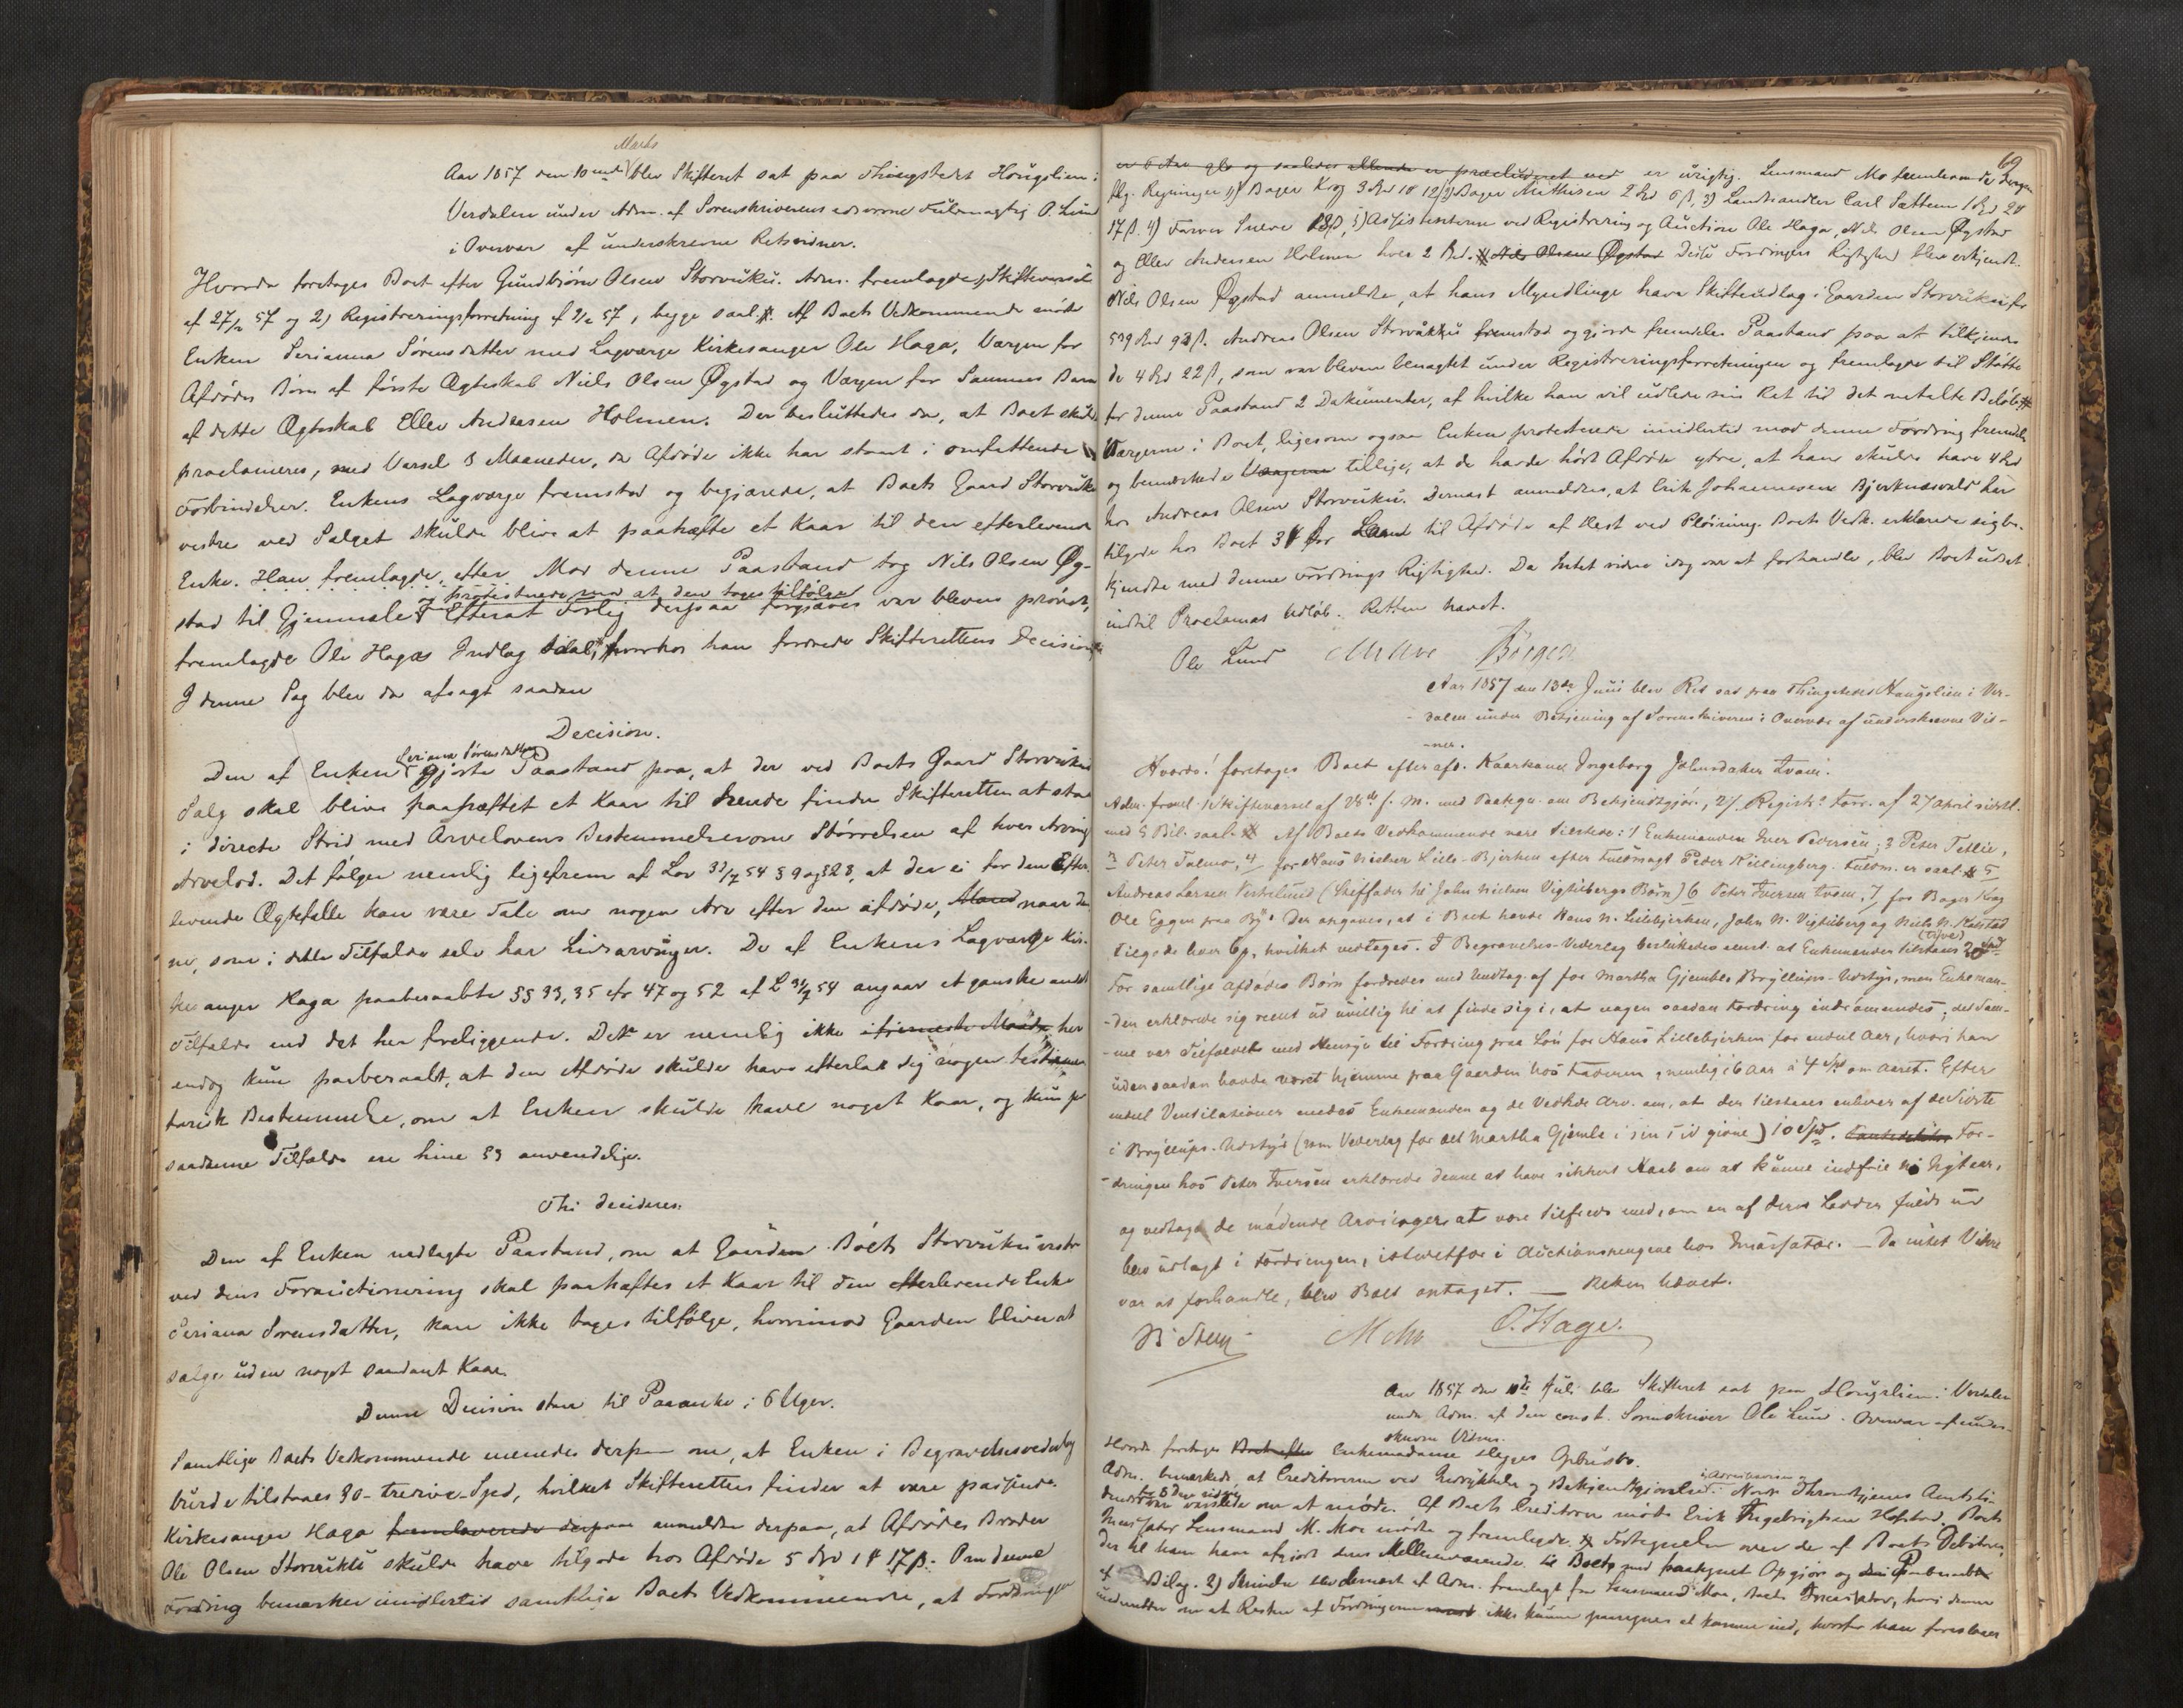 Marts
Aar 1857 den 10nde blev Skifteret sat paa Thingstedet Hougslien i
Verdalen under Adm. af Sorenskriverens edsvorne Fuldmægtig O. Lund
i Overvær af underskrevne Retsvidner.
Hvorda foretages Boet efter Gundbjørn Olsen Storvuku. Adm. fremlagde 1) Skiftevarsel
af 27/2 57 og 2) Registreringsforretning af 2/2 57, begge saal. #. Af Boets Vedkommende mødte
Enken Serianna Sørensdatter med Lagværge Kirkesanger Ole Haga, Værgen for
Afdødes Børn af første Ægteskab Niels Olsen Øgstad og Værgen for Sammes Børn
af dette Ægteskab Ellev Andersen Holmen. Der besluttedes da, at Boet skulde
proclameres, med Varsel 3 Maaneder, da Afdøde ikke har staaet i omfattende
Forbindelser. Enkens Lagværge fremstod og begjærede, at Boets Gaard Storvuku
vestre ved Salget skulde blive at paahæfte et Kaar til den efterlevende
Enke. Han fremlagde efter Mod denne Paastand tog Nils Olsen Øg-
og protesterede mod at den toges tilfølge
stad til Gjenmæle Efterat Forlig derpaa forgjæves var bleven prøvet,
fremlagde Ole Hagas Indlag saal. #, hvorhos han fordrede Skifterettens Decision
I denne Sag blev da afsagt saadan
Decision.
Seriana Sørensdatter
Den af Enken gjorte Paastand paa, at der ved Boets Gaard Storvukus
Salg skal blive paahæftet et Kaar til hende finder Skifteretten at staa
i directe Strid med Arvelovens Bestemmelser om Størrelsen af hver Arving
Arvelod. Det følger nemlig ligefrem af Lov 31/7 54 § 9 og § 28, at der ei for den Efter-
levende Ægtefælle kan være Tale om nogen Arv efter den afdøde, Mand naar den-
ne, som i dette Tilfælde selv har Livsarvinger. De af Enkens Lagværge Kir-
kesanger Haga paaberaabte §§ 33, 35 cfr 47 og 52 af L 31/7 54 angaar et ganske andet
Tilfælde end det her foreliggende. Det er nemlig ikke i fjerneste Maade her
endog kun paaberaabt, at den Afdøde skulde have efterladt sig nogen testamen-
tarisk Bestemmelse, om at Enken skulde have noget Kaar, og kun paa
saadanne Tilfælde ere hine §§ anvendelige.
Thi decideres:
Den af Enken nedlagte Paastand, om at Gaarden Boets Storvuku vestre
ved dens Forauctionering skal paahæftes et Kaar til den efterlevende Enke
Seriana Sørensdatter, kan ikke tages tilfølge, hvorimod Gaarden bliver at
sælge uden noget saadant Kaar.
Denne Decision staar til Paaanke i 6 Uger.
Samtlige Boets Vedkommende enedes derpaa om, at Enken i Begravelsesvederlag
burde tilstaaes 30 - tredive - Spd, hvilket Skifteretten finder at være passende.
Kirkesanger Haga fremleverede derpaa anmeldte derpaa, at Afdødes Broder
Ole Olsen Storvuku skulde have tilgode hos Afdøde 5 Spd 1 # 17 ß. Om denne
Fordring bemærker imidlertid samtlige Boets Vedkommende, at Fordringen
69
er 6 Aar glo og saaledes allerede er præcluderet ved er urigtig. Lensmand Mo fremlevede derpaa
flg. Regninger 1) Bager Krog 3 Spd 18 12/ 2) Bager Mathisen 2 Spd 6 ß, 3) Landhandler Carl Sættem 1 Spd 24
17 ß. 4) Farver Sneve 18 ß, 5) Assistenterne ved Registrering og Auction Ole Haga, Nils Olsen Øgstad
og Ellev Andersen Holmen hver 2 Spd. # Nils Olsen Øgstad Disse Fordringers Rigtighed blev erkjendt.
Nils Olsen Øgstad anmeldte, at hans Myndlinge have Skifteudlag i Gaarden Storvuku for
539 Spd 93 ß. Andreas Olsen Storvuku fremstod og gjorde fremdeles Paastand paa at tilkjendes
de 4 Spd 22 ß, som var bleven benægtet under Registreringsforretningen og fremlagde til Støtte
for denne Paastand 2 Dokumenter, af hvilke han vil udlede sin Ret til det omtalte Beløb #
Værgerne i Boet, ligesom ogsaa Enken protesterede imidlertid mod denne Fordring fremdeles
og bemærkede Værgerne tillige, at de havde hørt Afdøde ytre, at han skulde have 4 Spd
hos Andreas Olsen Storvuku. Dernæst anmeldtes, at Erik Johannesen Bjerknæsvald har
tilgode hos Boet 3 # for Laan til Afdøde af Hest ved Pløining. Boets Vedk. erklærede sig be-
kjendte med denne Fordrings Rigtighed. Da Intet videre idag var at forhandle, blev Boet udsat
indtil Proclamas Udløb. Retten hævet.
Ole Lund
Aar 1857 den 13de Juni blev Ret sat paa Thingstedet Haugslien i Ver-
dalen under Betjening af Sorenskriveren i Overvær af underskrevne Vid-
ner.
Hvorda! foretages Boet efter afd. Kaarkone Ingeborg Johnsdatter Kvam.
Adm. freml. Skiftevarsel af 28de f. M. med Paategn. om Bekjendtgjør., 2/ Registr.s Forr. af 27 April sidstl.
med 5 Bil. saal. # Af Boets Vedkommende vare tilstede: 1 Enkemanden Iver Pedersen; 2 Peter Tellie,
3 Peter Talmo, 4 for Hans Nielsen Lille-Bjerken efter Fuldmagt Peder Kielingberg. Fuldm. er saal. # 5
Andreas Larsen Verkelund (Stiffader til John Nielsen Vigtilbergs Børn) 6 Peter Iversen Kvam, 7, for Bager Krog
Ole Eggen paa By. Der angaves, at i Boet havde Hans N. Lillebjerken, John N. Vigtilberg og Niels N. Karstad
tilgode hver 6 p, hvilket vedtages. I Begravelses-Vederlag besluttedes eenst. at Enkemanden tilstaaes 20 Spd
(tyve)
For samtlige afdødes Børn fordredes med Undtag. af for Martha Gjembles Bryllups-Udstyr, men Enkeman-
den erklærede sig reent ud uvillig til at finde sig i, at nogen saadan Fordring indrømmedes; det Sam-
me var Tilfældet med Hensyn til Fordring paa Løn for Hans Lillebjerken for endeel Aar, hvori han
uden saadan havde været hjemme paa Gaarden hos Faderen, nemlig i 6 Aar à 4 Spd om Aaret. Efter
endeel Ventilationer enedes Enkemanden og de Vedkde Arv. om, at der tilstaaes enhver af de Sidste
i Bryllups-Udstyr (som Vederlag for det Martha Gjemble i sin Tid givne) 10 Spd. For-
dringen hos Peter Iversen erklærede denne at have sikkert Haab om at kunne indfrie til Nytaar,
og vedtage de mødende Arvinger at være tilfreds med, om en af deres Lodder fuldt ud
blev udlagt i Fordringen, istedetfor i Auctionspengene hos Incassator. - Da intet Videre
var at forhandle, blev Boet optaget. - Retten hævet.
O. Hage.
Aar 1857 den 10de Juli blev Skifteret sat paa Hougslien i Verdalen
under Adm. af den const. Sorenskriver Ole Lund i Overvær af under-
skrevne Vidner.
Hvorda foretages Boet efter Enkemadame Opbudsbo.
Adm. bemærkede, at Creditorerne ved Indrykkelse og Bekjendtgjørelse i Nordre Throndhjems Amtsti-
i Adresseavisen
dende vare varslede om at møde. Af Boets Creditorer mødte Erik Ingebrigtsen Hofstad. Boets
Incassator Lensmand M. Moe mødte og fremlagde # Fortegnelse over de af Boets Debitorer,
der til ham have afgjort deres Mellemværende til Boets med paategnet Opgjør og Paaberaabt
af Bilag. 2) Skrivelse blev dernæst af Adm. fremlagt fra Lensmand Moe, Boets Incassator, hvori denne
underretter om at Resten af Fordringerne ikke kunne paaregnes at komme ind, hvorfor han foreslaaer